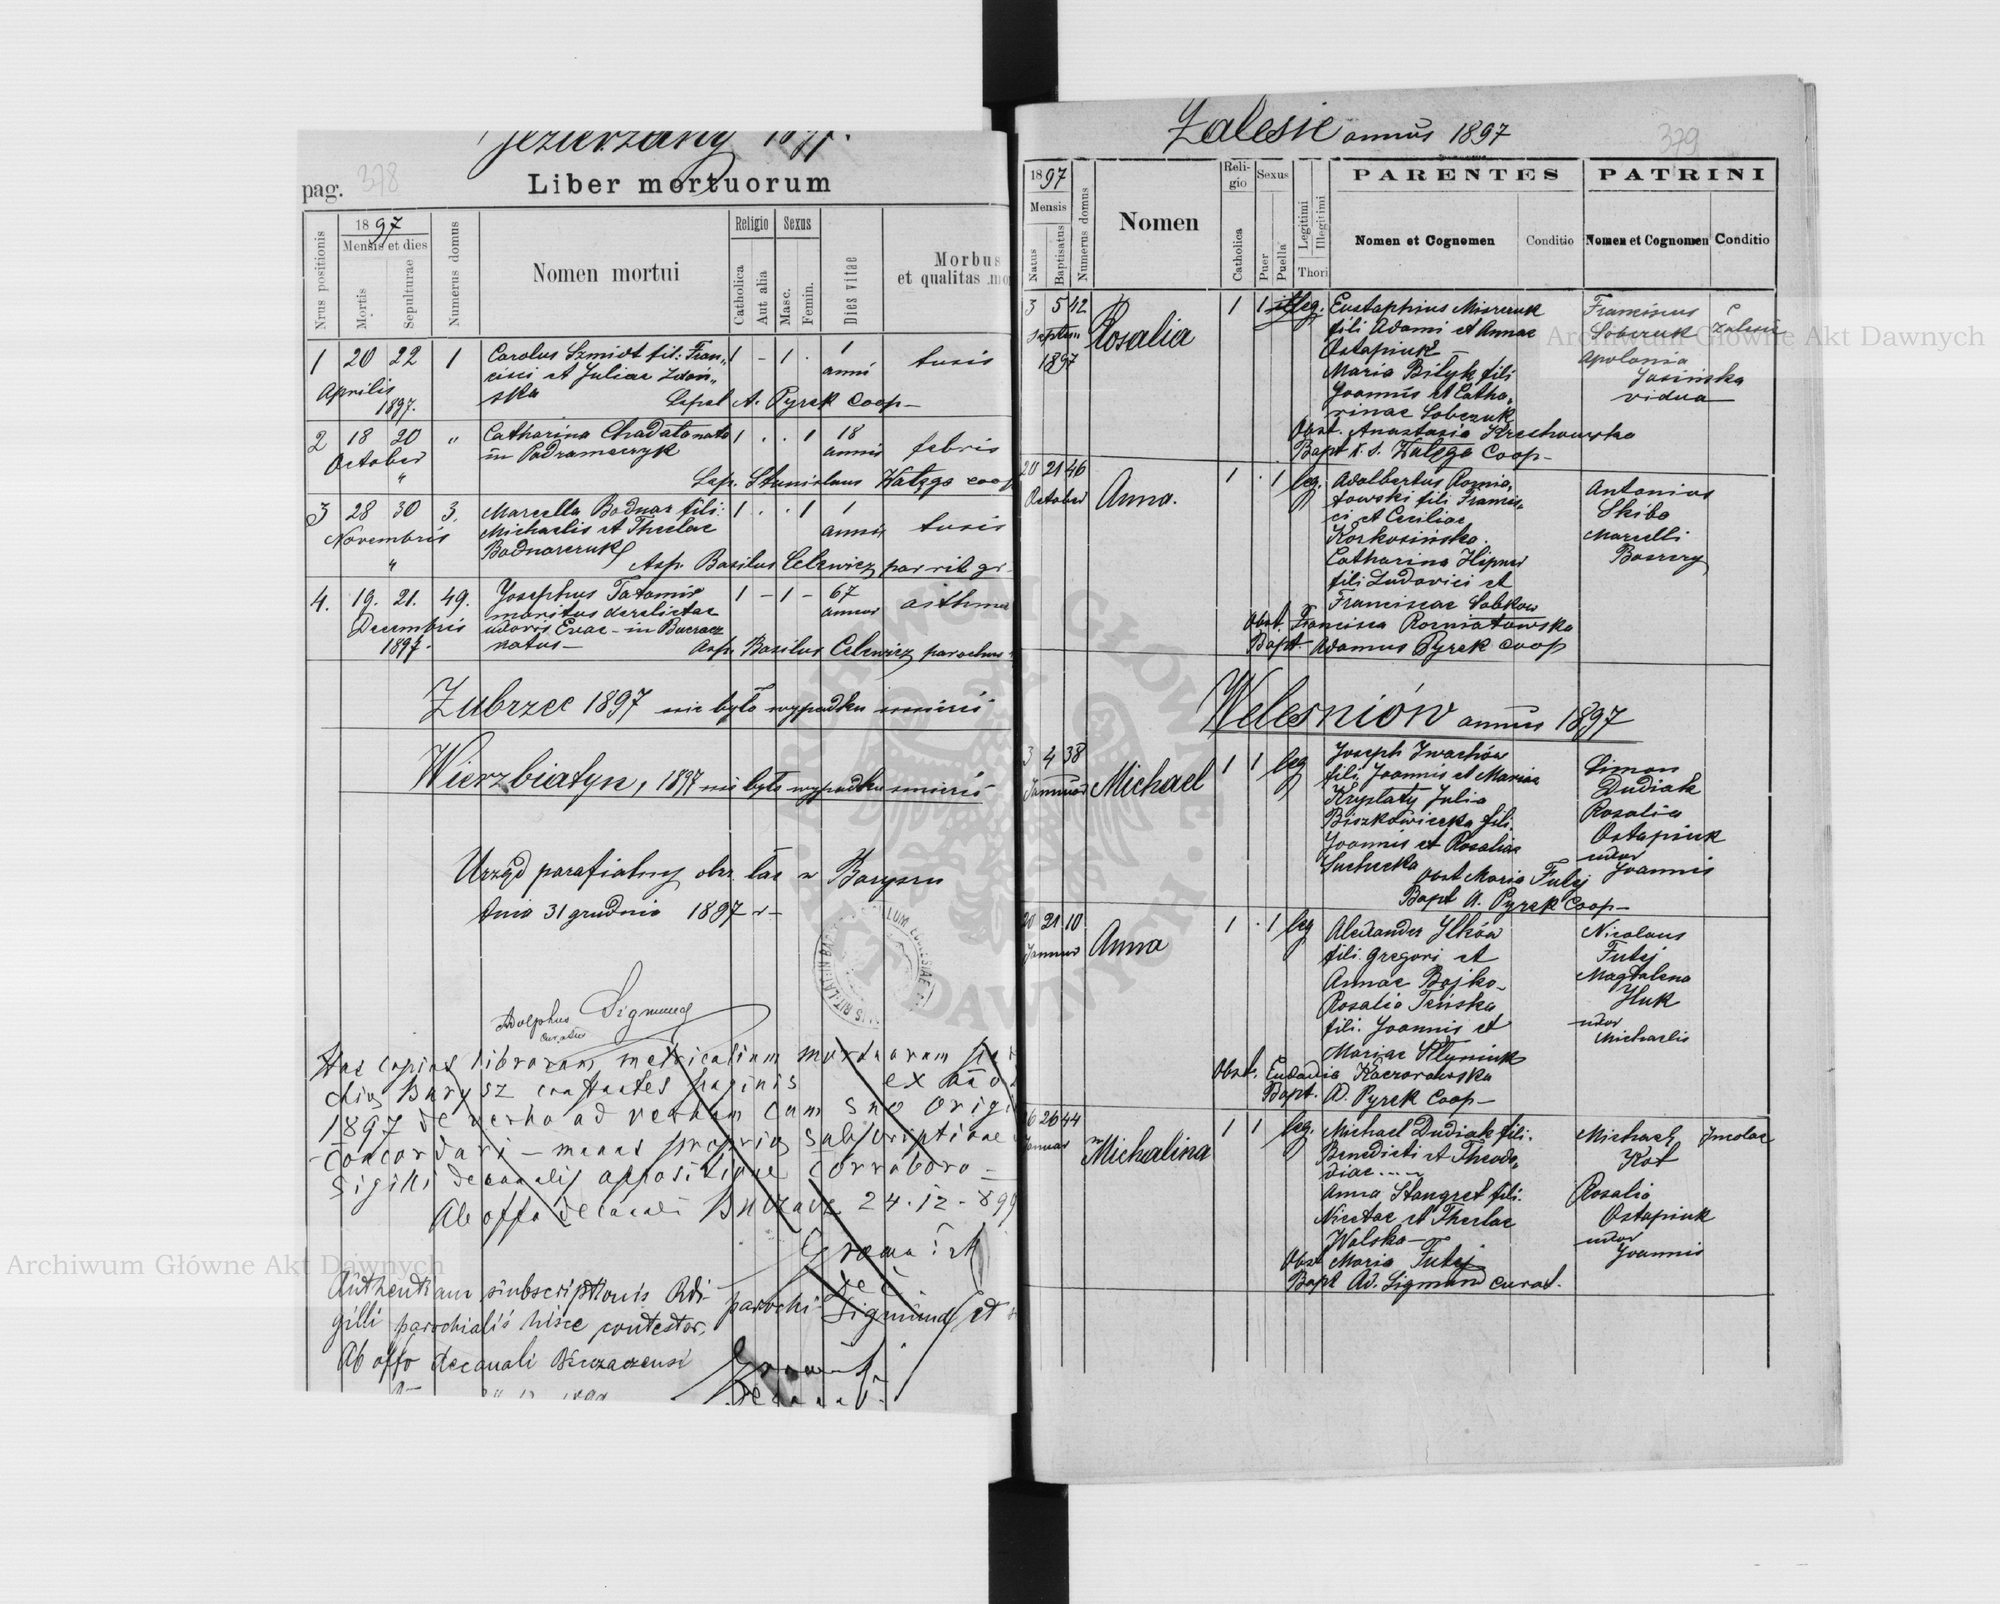 Jezierzany 1897.
pag. 378
Liber mortuorum
Nrus positionis
1897
Mensis et dies
Mortis
Sepulturae
Numerus domus
Nomen mortui
Religio
Catholica
Aut alia
Sexus
Masc.
Femin.
Dies vitae
Morbus
et qualitas mo
1 20 22 1 Carolus Szmidt fil: Fran„ 1 - 1 . 1 tusis
Aprilis cisci et Juliae anni
1897. ska Sepel A. Pyrek Coop-
2 18 20 " Catharina Chadata nata 1 . . 1 18 febris
October in Podzameczyk annis
" Sep. Stanislaus Wałęga coop
3 28 30 3. Marcella Bodnar fili: 1 . . 1 1 tusis
Novembris Michaelis et Theclae annis
Bodnarczuk
" Asp. Basilus Celewicz par rit gr
4. 19. 21. 49. Josephus Tatomir 1 - 1 - 67 asthma
Decembris maritus derelictae annos
uxoris Evae - in Buczacz
1897. natus- Asp. Basilus Celewicz parochus
Zubrzec 1897 nie było wypadku śmierci
Wierzbiatyn, 1897 nie było wypadku śmierci
Urząd parafialny obrz. łac w Baryszu
dnia 31 grudnia 1897 r-
Adolphus Sigmund
curatus
Has copias librorum metricalium mortuorum
Barysz constantes paginis ex
1897 de verbo ad verbum cum suo origi
concordari - manus propria subscriptione
sigilli decanalis appositione corroboro =
Ab offo decanali Buczacz 24.12.899
Authentiam subscriptionis Rdi parochi Sigmund et
gilli parochialis hisce contestor.
Ab offo decanali Buczacensi
Zalesie annus 1897
379
1897
Mensis
Natus
Baptisatus
Numerus domus
Nomen
Religio
Catholica
Sexus
Puer
Puella
Legitimi
Illegitimi
Thori
PARENTES
Nomen et Cognomen
Conditio
PATRINI
Nomen et Cognomen
Conditio
3 5 42 Rosalia 1 1 leg. Eustaphius
Septem. fili Adami et Annae
1897 Ostapiuk
Maria Bilyk fili
Joannis et Catha„
rinae Sobczuk
Franciscus
Sobczuk
Apolonia
Jasińska
vidua
Obst. Anastasia Krechowska
Bapt X. S. Wałęga Coop-
20 21 46 Anna. 1 . 1 leg. Adalbertus Roznia„
October towski fili Francis„
ci et Ceciliae
Korkosińska.
Catharina Hipner
fili Ludovici et
Franciscae Sobkow
Antonius
Skiba
Marcelli
Obst. Francisca Rozniatowska
Bapt. Adamus Pyrek coop
Welesniów annus 1897
3 4 38 Michael 1 1 leg Joseph Iwachów
Januar fili Joannis et Mariae
Kryplaty Julia
fili.
Joannis et Rosaliae
Suchecka
Simon
Dudiak
Rosalia
Ostapiuk
uxor
Joannis
Obst Maria Futej
Bapt A. Pyrek Coop-
20 21 10 Anna 1 . 1 leg Alexander Ilków
Januar fili. Gregori et
Annae Bojko-
Rosalia
fili. Joannis et
Mariae
Nicolaus
Futej
Magdalena
Huk
uxor
Michaelis
Obst. Eudoxia Kaczorowska
Bapt. A. Pyrek Coop-
26 26 44 Michalina 1 1 leg. Michael Dudiak fili.
Januar Benedicti et Theodo„
ziae
Anna Stangret fili.
Nicetae et Theclae
Walska-
Michael
Kot
Rosalia
Ostapiuk
uxor
Joannis
Incolae
Obst Maria Futej
Bapt Ad. Sigmund curat.
Archiwum Główne Akt Dawnych
Archiwum Główne Akt Dawnych
ARCHIWUM GŁÓWNE AKT DAWNYCH